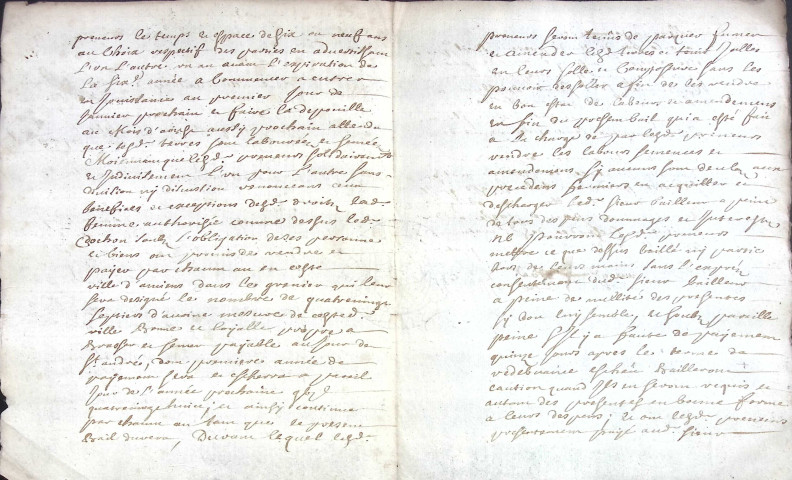 preneurs le temps et espace de six ou neuf ans
au choix respectif des parties en advertissant
l'un l'autre un an avant l'expiration de
la six.e année a commencer a entrer
en jouissance au premier jour de
janvier prochain et faire la depouille
au mois d'aoust aussy prochain attendu
que les terres sont labourées et semées
Moiennant que lesd. preneurs solidairem.t
et indivisement l'un pour l'autre sans
division ny discution renonceans aux
benefices et exceptions desd. droits lad.
femme authorisée comme dessus led.
Cochon soubz l'obligation de ses personne
et biens ont promis de rendre et
paier par chacun an en ceste
ville d'amiens dans les grenier qui leur
sera designé le nombre de quatrevingt
septiers d'avoine mesure de ceste d.
ville bonne et loyalle propre a
brasser et semer payable au jour de
St. andré, dont premiere année de
payement sera et escherra a pareil
jour de l'année prochaine
quatrevingt huict, et ainsy continuer
par chacun an tant que le present
bail durera, Durant lequel lesd.
preneurs seront tenus de fumer
et amender lesd. terres et icelles
en leurs solle et compost sans les
pouvoir dessoler afin de les rendre
en bon estat de labours et amendemens
en fin du present bail qui a esté fait
a la charge de par lesd. preneurs
rendre les labours semences et
amendemens sy aucuns sont deus aux
precedens fermiers en acquitter et
descharger led. sieur bailleur a peine
de tous despens dommages et interests
ne pouvoir lesd. preneurs
mettre ce que dessus baillé ny partie
hors de leurs mains sans l'exprès
consentement dud. sieur bailleur
a peine de nullité des presentes
sy bon luy semble, et soubz pareille
peine s'il y a faute de payement
quinze jours apres les termes de
caution quand ilz en seront requis et
autant des presentes en bonne forme
a leurs despens; et ont lesd. preneurs
presentement paié aud. sieur